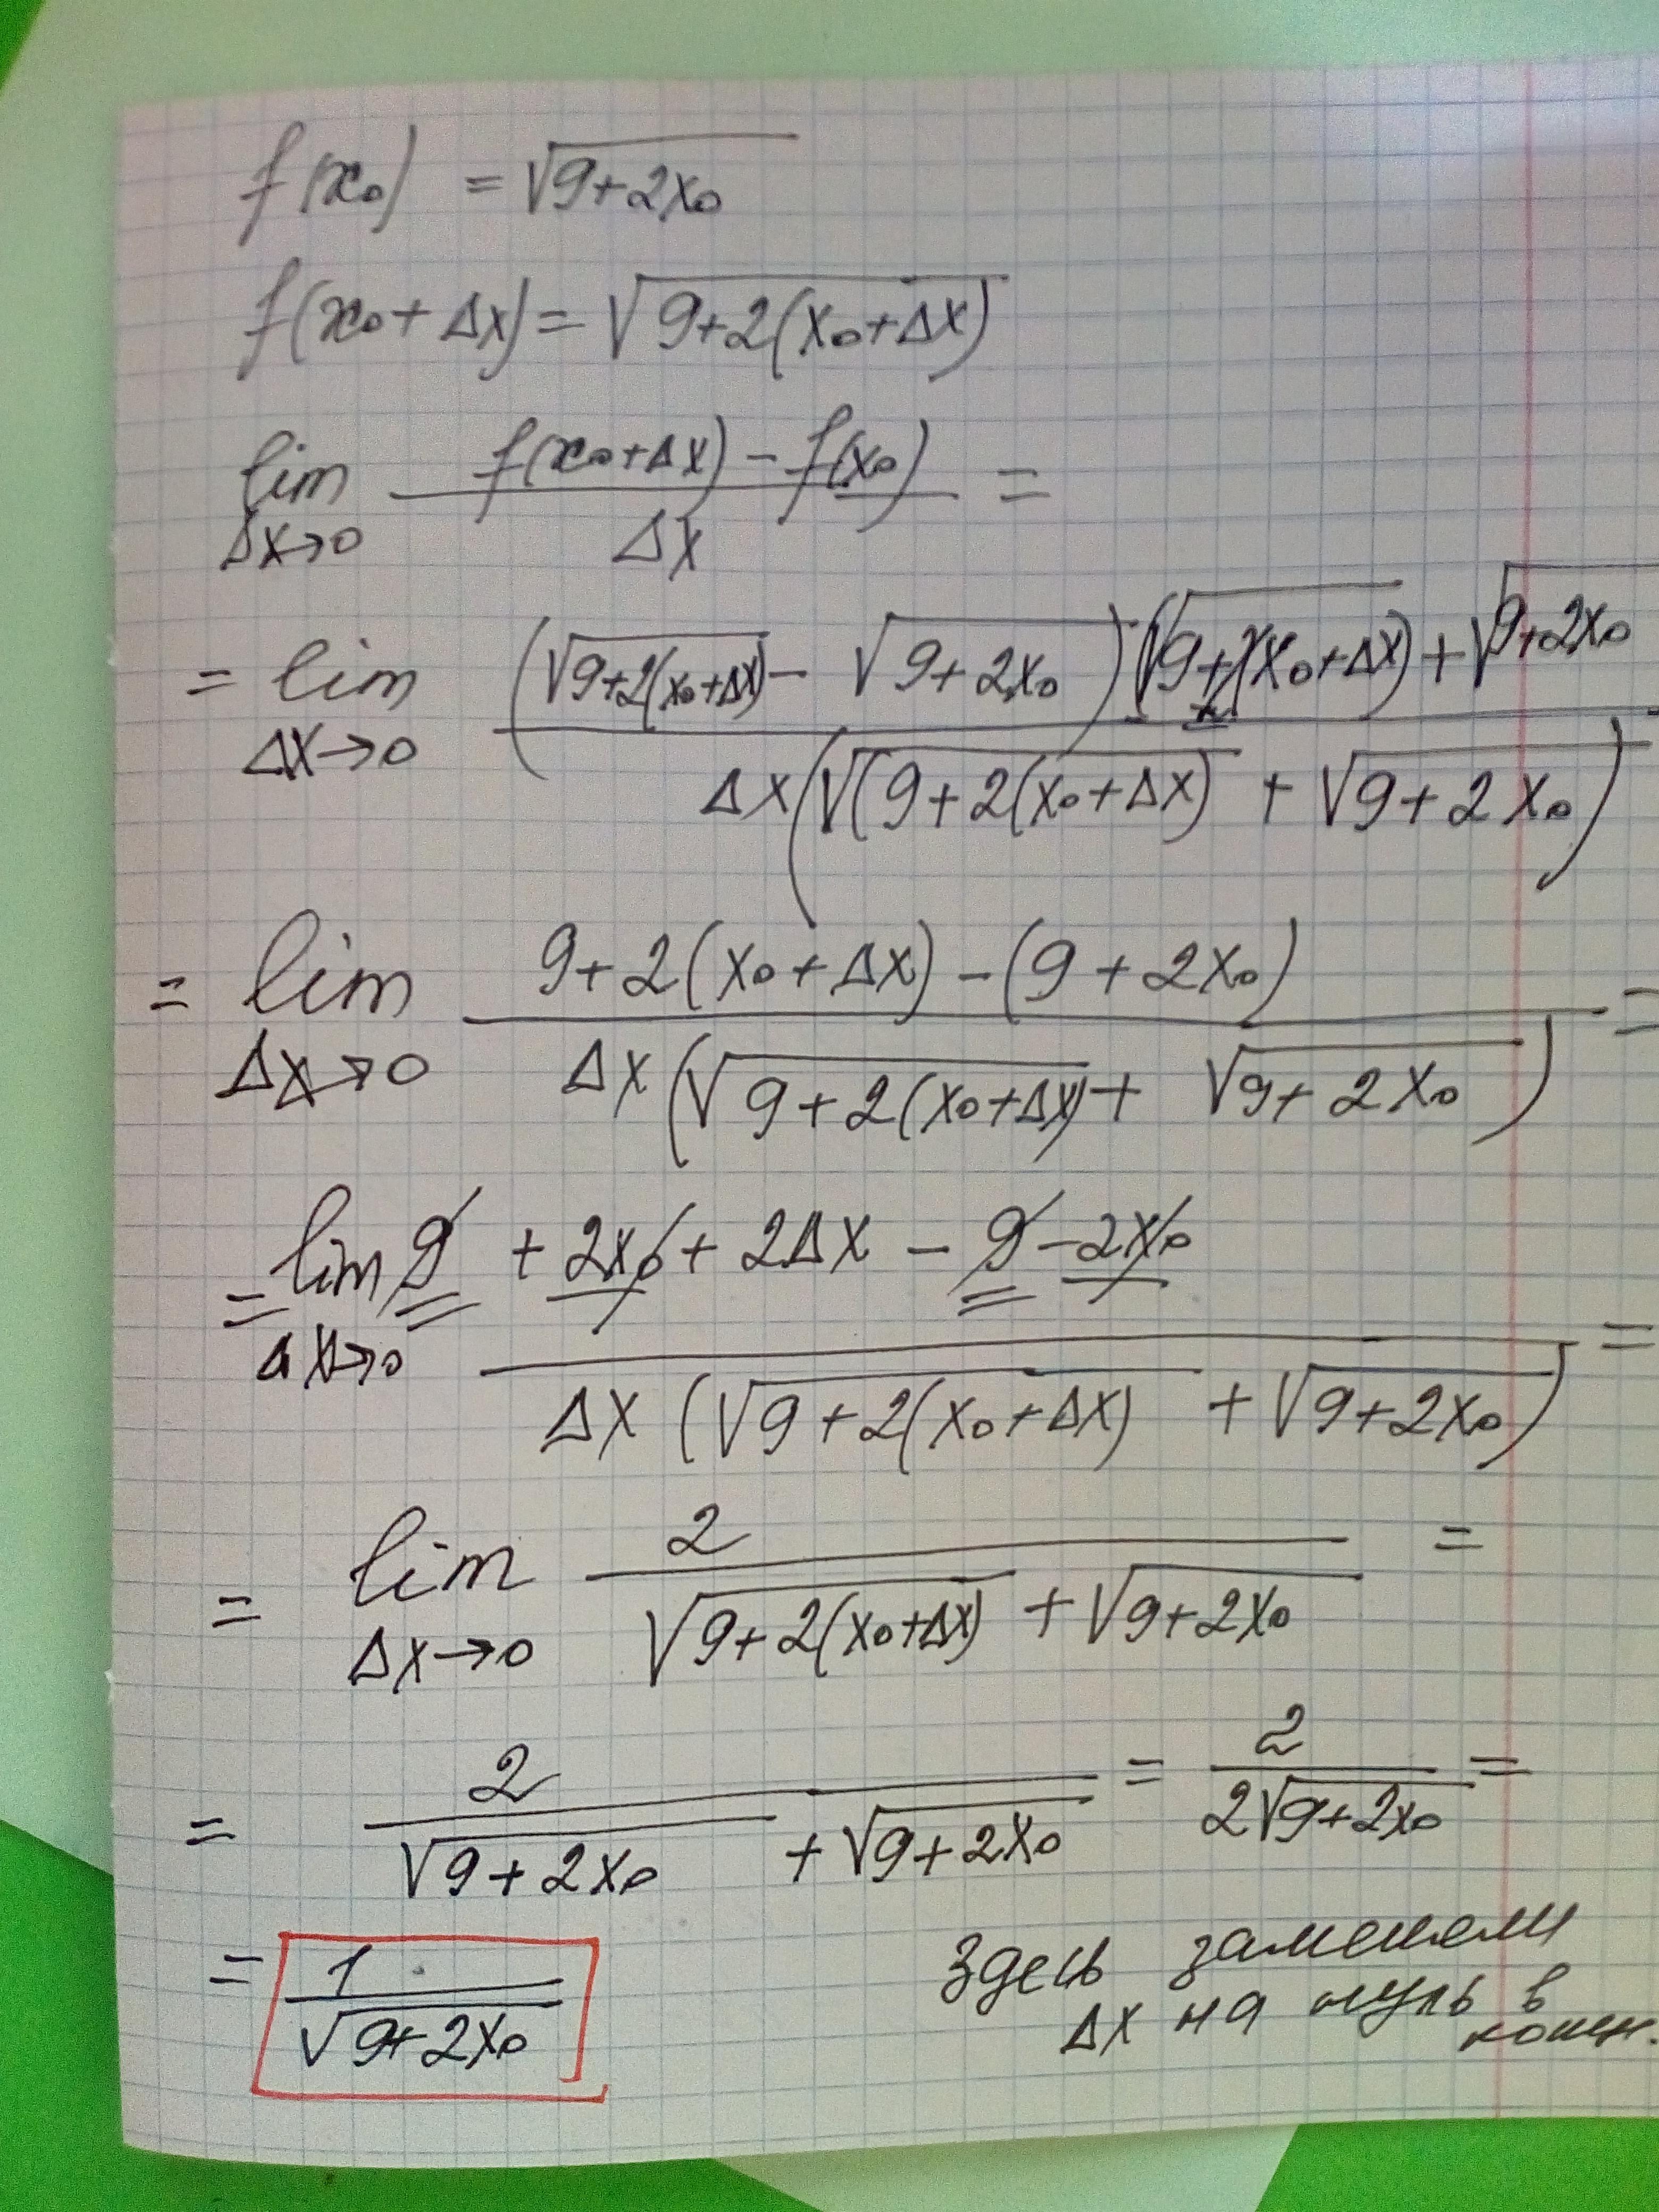 f(x₀) = √(9+2x₀)
f(x₀+Δx) = √(9+2(x₀+Δx))
lim Δx→0 (f(x₀+Δx) − f(x₀)) / Δx =
= lim Δx→0 (√(9+2(x₀+Δx)) − √(9+2x₀))(√(9+2(x₀+Δx)) + √(9+2x₀) / Δx(√((9+2(x₀+Δx)) + √(9+2x₀))
= lim Δx→0 (9+2(x₀+Δx) − (9+2x₀)) / Δx(√(9+2(x₀+Δx)) + √(9+2x₀)) =
= lim Δx→0 (9 + 2x₀ + 2Δx − 9 − 2x₀) / Δx(√(9+2(x₀+Δx)) + √(9+2x₀)) =
= lim Δx→0 2 / (√(9+2(x₀+Δx)) + √(9+2x₀)) =
= 2 / (√(9+2x₀) + √(9+2x₀)) = 2 / (2√(9+2x₀)) =
= 1 / √(9+2x₀)
Здесь заменяем
Δx на нуль в